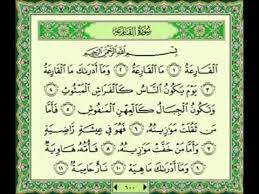 سُورَةُ القَارِعَةِ
بِسْمِ اللَّهِ الرَّحْمَٰنِ الرَّحِيمِ
الْقَارِعَةُ ١ مَا الْقَارِعَةُ ٢ وَمَا أَدْرَاكَ مَا الْقَارِعَةُ
٣ يَوْمَ يَكُونُ النَّاسُ كَالْفَرَاشِ الْمَبْثُوثِ ٤
وَتَكُونُ الْجِبَالُ كَالْعِهْنِ الْمَنْفُوشِ ٥ فَأَمَّا
مَنْ ثَقُلَتْ مَوَازِينُهُ ٦ فَهُوَ فِي عِيشَةٍ رَاضِيَةٍ
٧ وَأَمَّا مَنْ خَفَّتْ مَوَازِينُهُ ٨ فَأُمُّهُ هَاوِيَةٌ
٩ وَمَا أَدْرَاكَ مَا هِيَهْ ١٠ نَارٌ حَامِيَةٌ ١١
٦٠٠